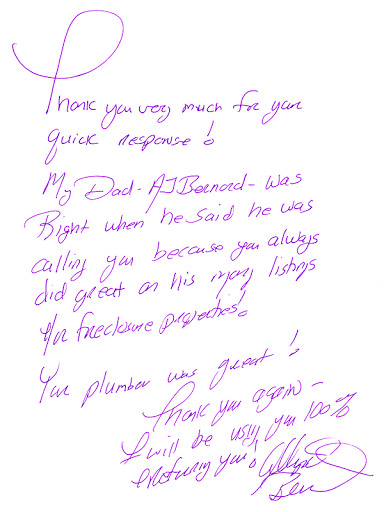 Thank you very much for your
quick response!
My Dad - AJ Bernard - was
Right when he said he was
calling you because you always
did great on his many listings
for foreclosure properties!
Your plumber was great!
Thank you again -
I will be using you 100%
& returning you!